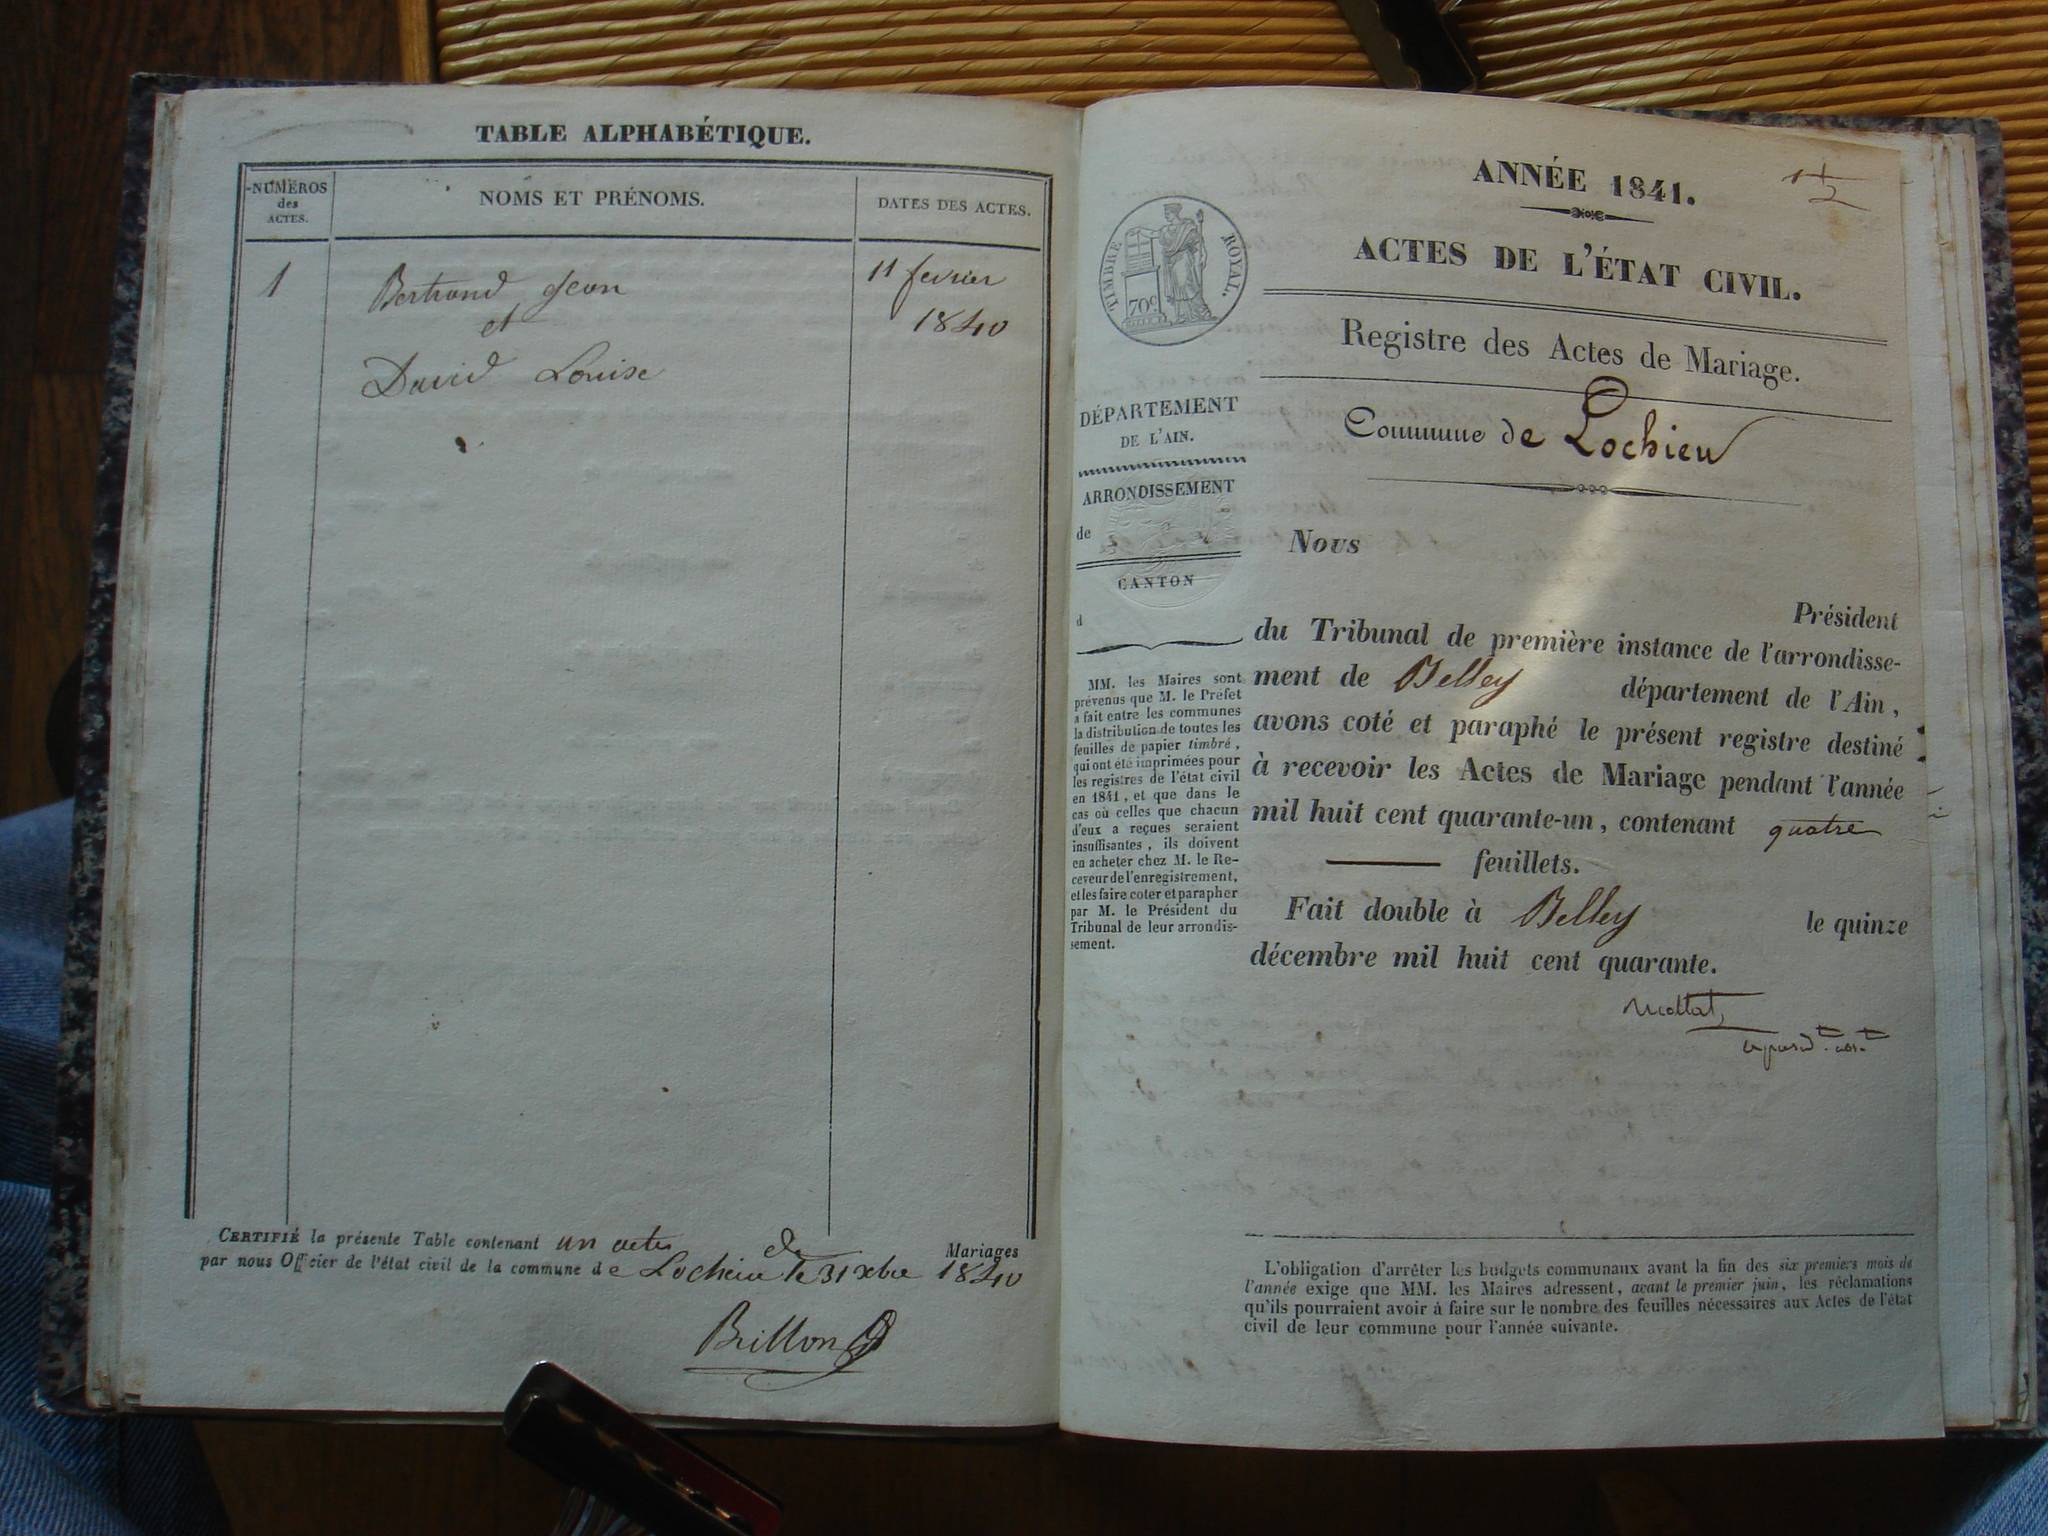 TABLE ALPHABÉTIQUE.
NUMÉROS
des
ACTES.
NOMS ET PRÉNOMS.
DATES DES ACTES.
1
Bertrand Jean
11 fevrier
et
1840
David Louise
CERTIFIÉ la présente Table contenant un acte de Mariages
par nous Officier de l'état civil de la commune de Lochieu le 31 xbre 1840
Brillon
1
ANNÉE 1841.
ACTES DE L'ÉTAT CIVIL.
TIMBRE ROYAL.
70c
Registre des Actes de Mariage.
Commune de Lochieu
DÉPARTEMENT
DE L'AIN.
ARRONDISSEMENT
de
CANTON
d
MM. les Maires sont
prévenus que M. le Préfet
a fait entre les communes
la distribution de toutes les
feuilles de papier timbré,
qui ont été imprimées pour
les registres de l'état civil
en 1841, et que dans le
cas où celles que chacun
d'eux a reçues seraient
insuffisantes, ils doivent
en acheter chez M. le Re-
ceveur de l'enregistrement,
et les faire coter et parapher
par M. le Président du
Tribunal de leur arrondis-
sement.
Nous
Président
du Tribunal de première instance de l'arrondisse-
ment de Belley département de l'Ain,
avons coté et paraphé le présent registre destiné
à recevoir les Actes de Mariage pendant l'année
mil huit cent quarante-un, contenant quatre
feuillets.
Fait double à Belley le quinze
décembre mil huit cent quarante.
L'obligation d'arrêter les budgets communaux avant la fin des six premiers mois de
l'année exige que MM. les Maires adressent, avant le premier juin, les réclamations
qu'ils pourraient avoir à faire sur le nombre des feuilles nécessaires aux Actes de l'état
civil de leur commune pour l'année suivante.